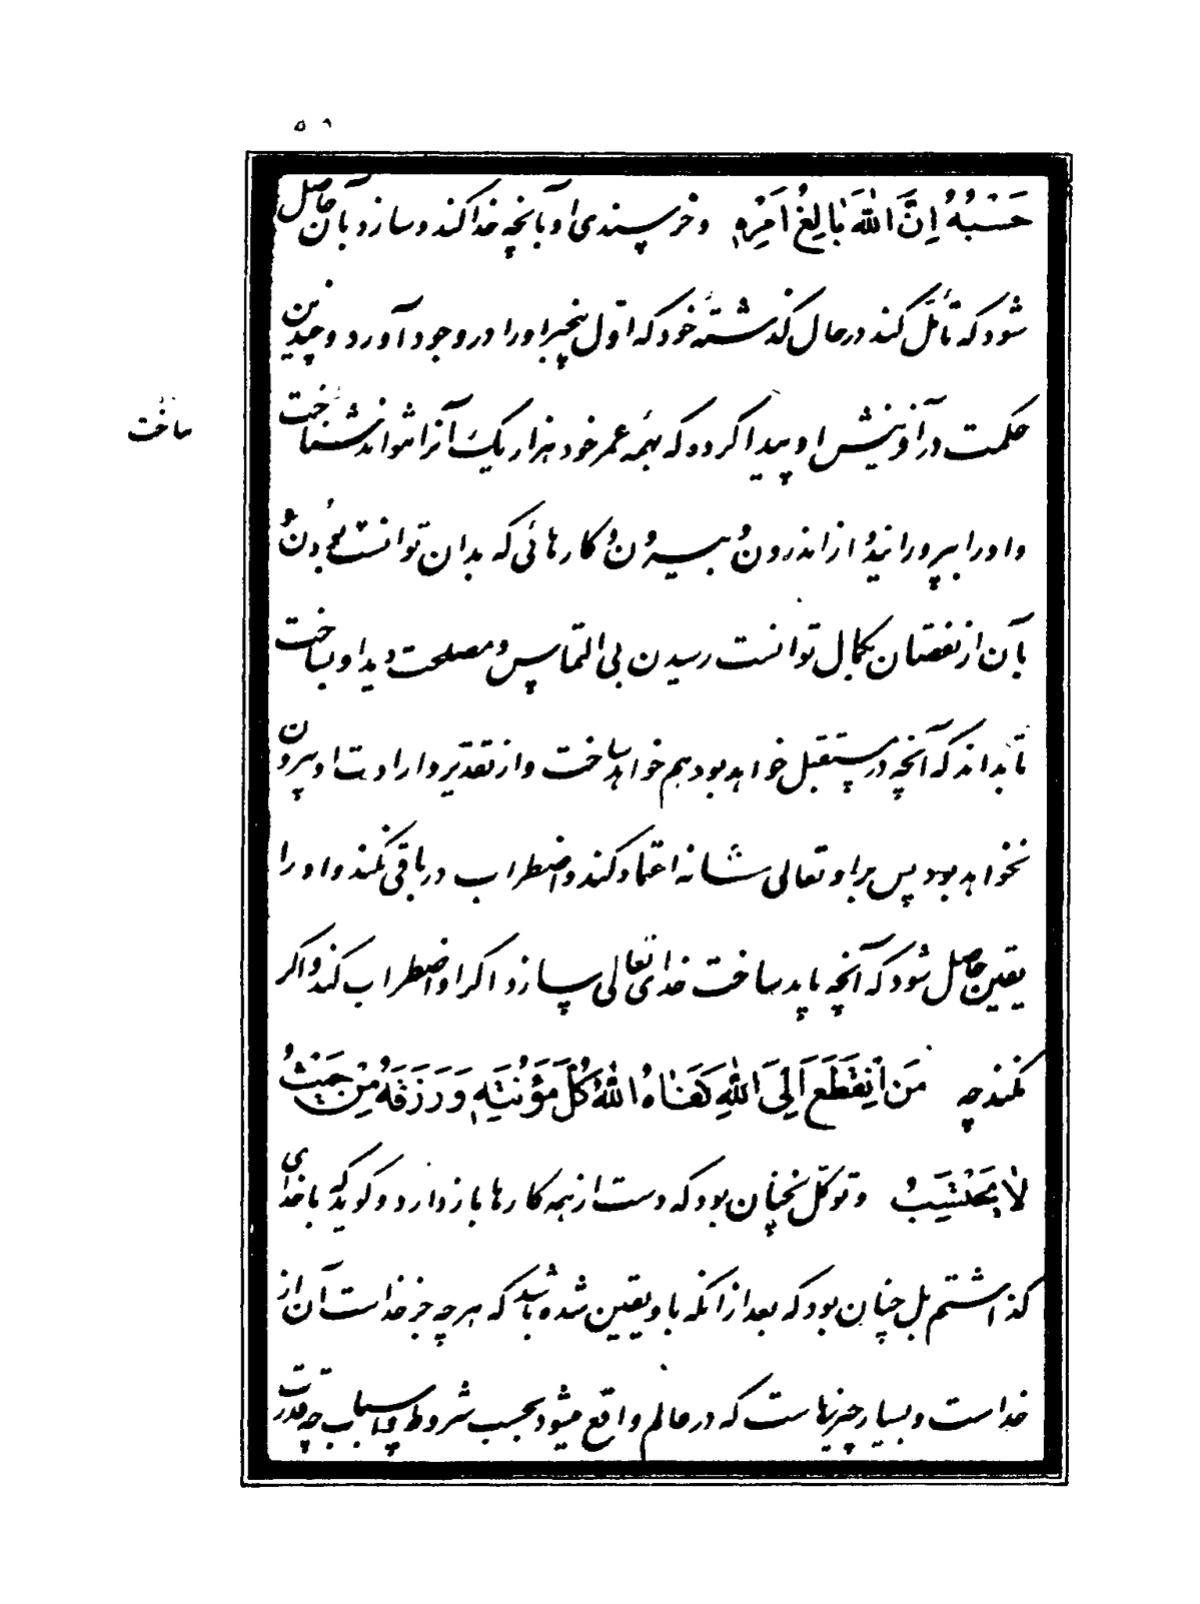 ۵۹
حَسْبُهُ اِنَّ اللّٰهَ بَالِغُ اَمْرِهِ وخرسندی او بآنچه خدا کند و سازد بآن حاصل
شود که تأمّل کند در حال گذشتهٔ خود که اوّل بیخبر او را در وجود آورد و چندین
حکمت در آفرینش او پیدا کرد که بهمه عمر خود هزار یک آنرا نتواند شناخت
ساخت
و او را بپرورانید از اندرون و بیرون کارهائی که بدان توانست بودن و
بآن از نقصان بکمال توانست رسیدن بی التماس و مصلحت دید او بساخت
تا بداند که آنچه در مستقبل خواهد بود هم خواهد ساخت و از تقدیر و ارادت او بیرون
نخواهد بود پس بر او تعالی شانه اعتماد کند و اضطراب در باقی نکند و او را
یقین حاصل شود که آنچه باید ساخت خدای تعالی بسازد اکر او اضطراب کند و اکر
نکند چه مَنِ انْقَطَعَ اِلَی اللّٰهِ کَفَاهُ اللّٰهُ کُلَّ مَؤُنَتِهِ وَرَزَقَهُ مِنْ حَیْثُ
لَا یَحْتَسِبُ و توکّل نچنان بود که دست از همه کارها باز دارد و کوید که با خدای
گذاشتم بل چنان بود که بعد از انکه با و یقین شده باشد که هرچه جز خداست آن از
خداست و بسیار چیزهاست که در عالم واقع میشود بحسب شروط و اسباب چه قدرت